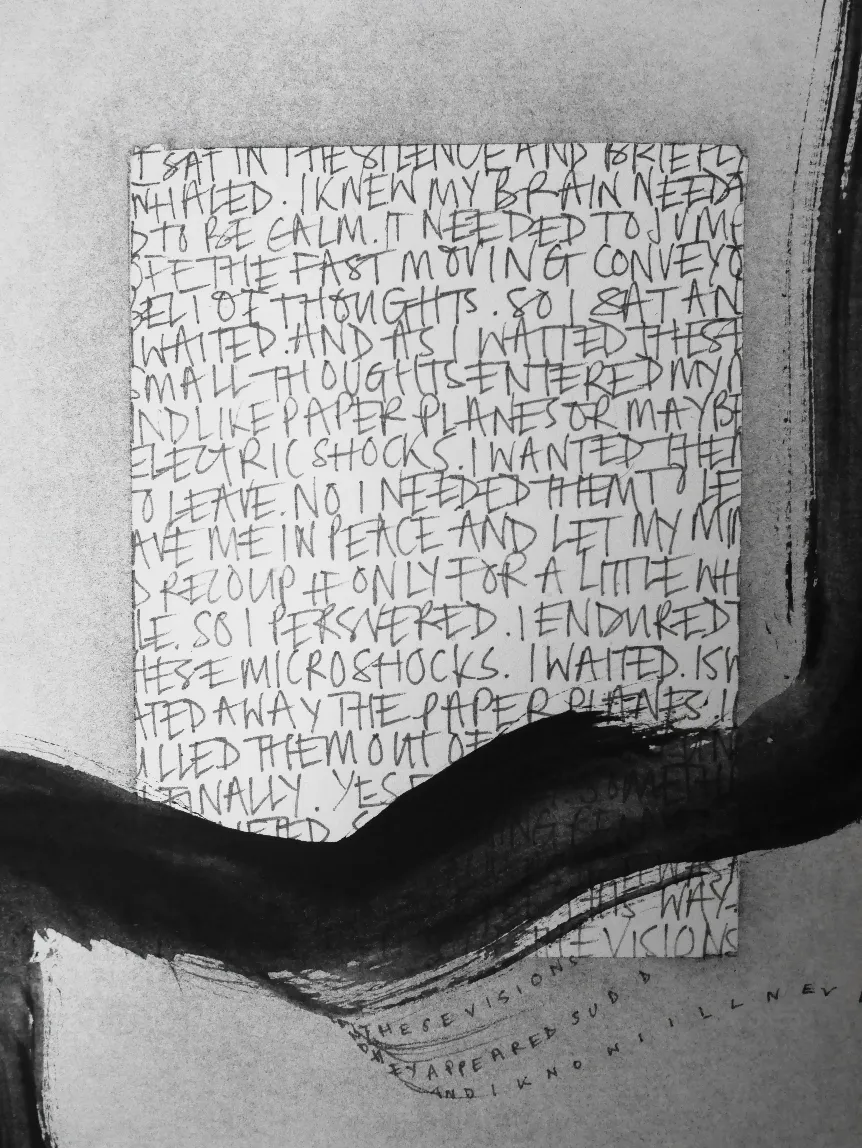 I SAT IN THE SILENCE AND BRIEFLY
INHALED. I KNEW MY BRAIN NEEDE
D TO BE CALM. IT NEEDED TO JUMP
OFF THE FAST MOVING CONVEYO
BELT OF THOUGHTS. SO I SAT AN
I WAITED. AND AS I WAITED THESE
SMALL THOUGHTS ENTERED MY M
IND LIKE PAPER PLANES OR MAYBE
ELECTRIC SHOCKS. I WANTED THEM
TO LEAVE. NO I NEEDED THEM TO LE
AVE ME IN PEACE AND LET MY MIN
D RECOUP IF ONLY FOR A LITTLE WH
ILE. SO I PERSVERED. I ENDURED T
HESE MICROSHOCKS. I WAITED. I SW
ATED AWAY THE PAPER PLANES. I
ULLED THEM OUT OF
FINALLY. YES SOMETHI
WAY.
THE VISIONS
THESE VISIONS
EY APPEARED SUDD
AND I KNOW I ILL NEV